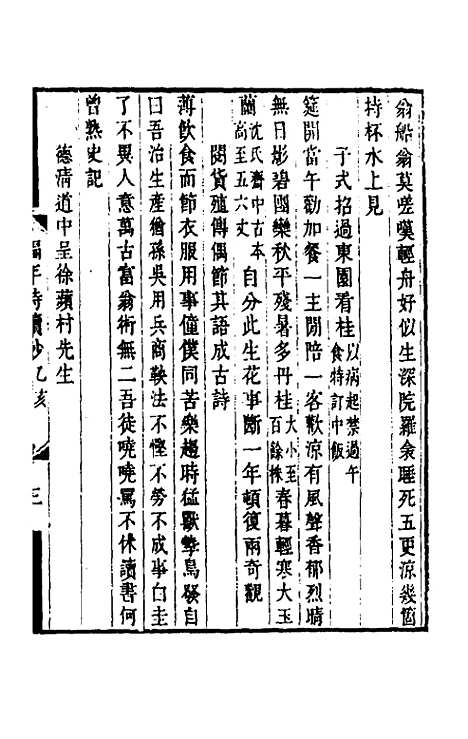 翁船翁莫嗟嘆輕舟好似生深院羅衾睡死五更涼幾箇
持杯水上見
子式招過東園看桂以病起禁過午食特訂中飯
筵開當午勸加餐一主閒陪一客歡涼有風聲香郁烈晴
無日影碧團欒秋平殘暑多丹桂大小至百餘株春暮輕寒大玉
蘭沈氏齋中古本高至五六丈自分此生花事斷一年頓復兩奇觀
閱貨殖傳偶節其語成古詩
薄飲食而節衣服用事僮僕同苦樂趨時猛獸摯鳥發自
曰吾治生產猶孫吳用兵商鞅法不慳不勞不成事白圭
了不異人意萬古富翁術無二吾徒嘵嘵罵不休讀書何
曾熟史記
德清道中呈徐蘋村先生
編年詩續鈔乙亥
三